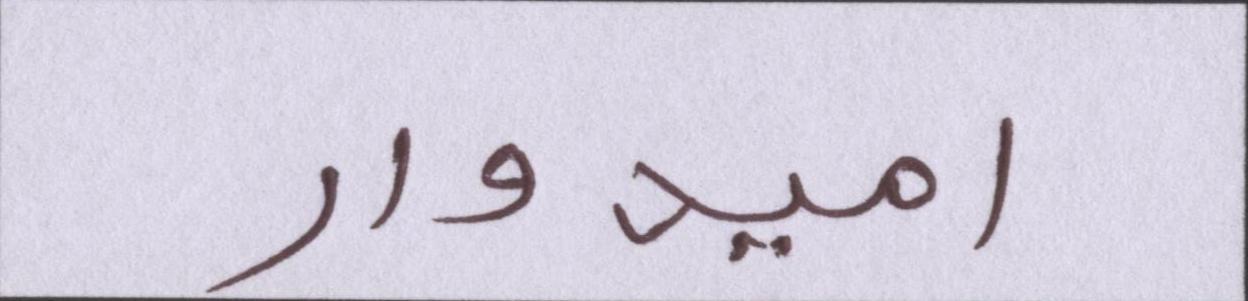 امیدوار